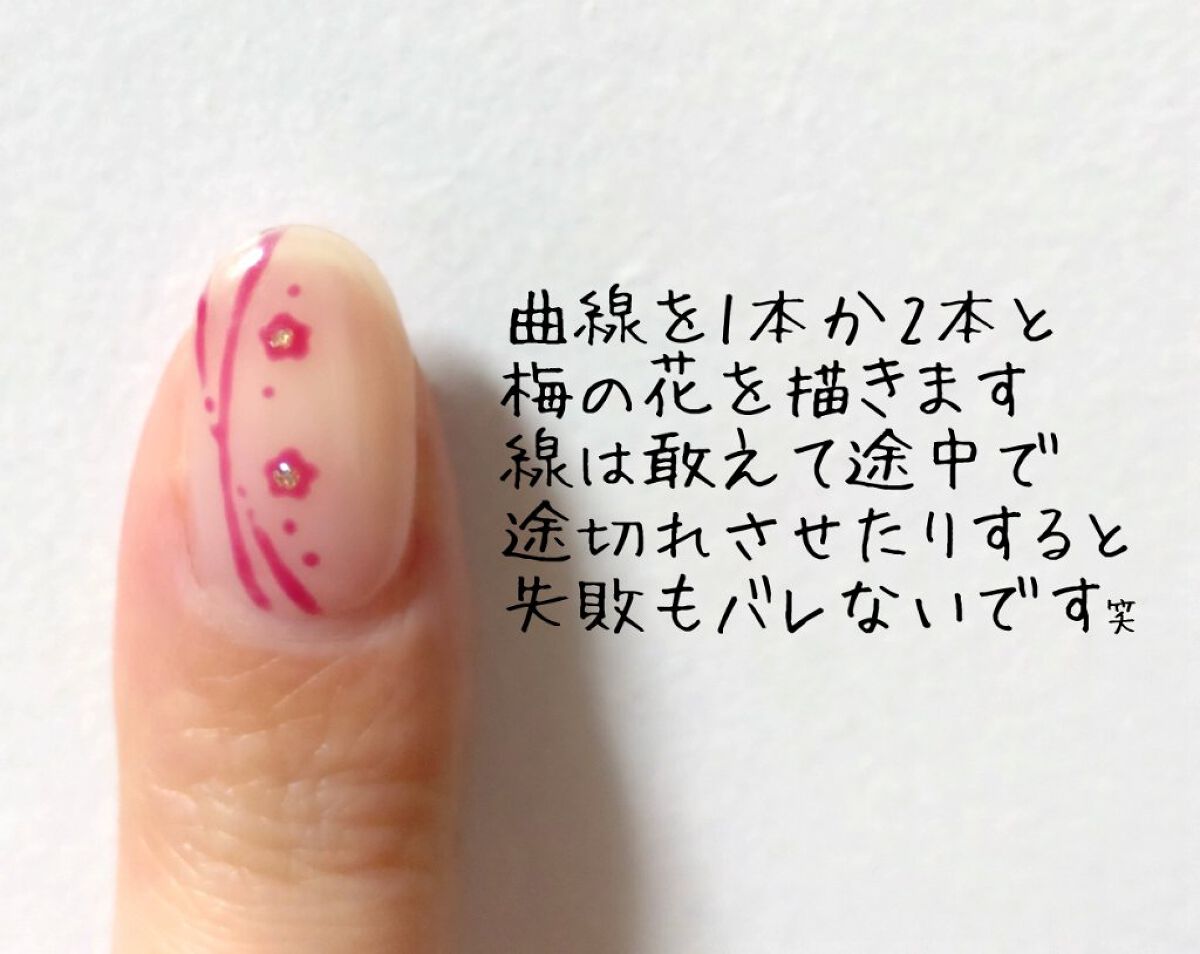 曲線を1本か2本と
梅の花を描きます
線は敢えて途中で
途切れさせたりすると
失敗もバレないです笑